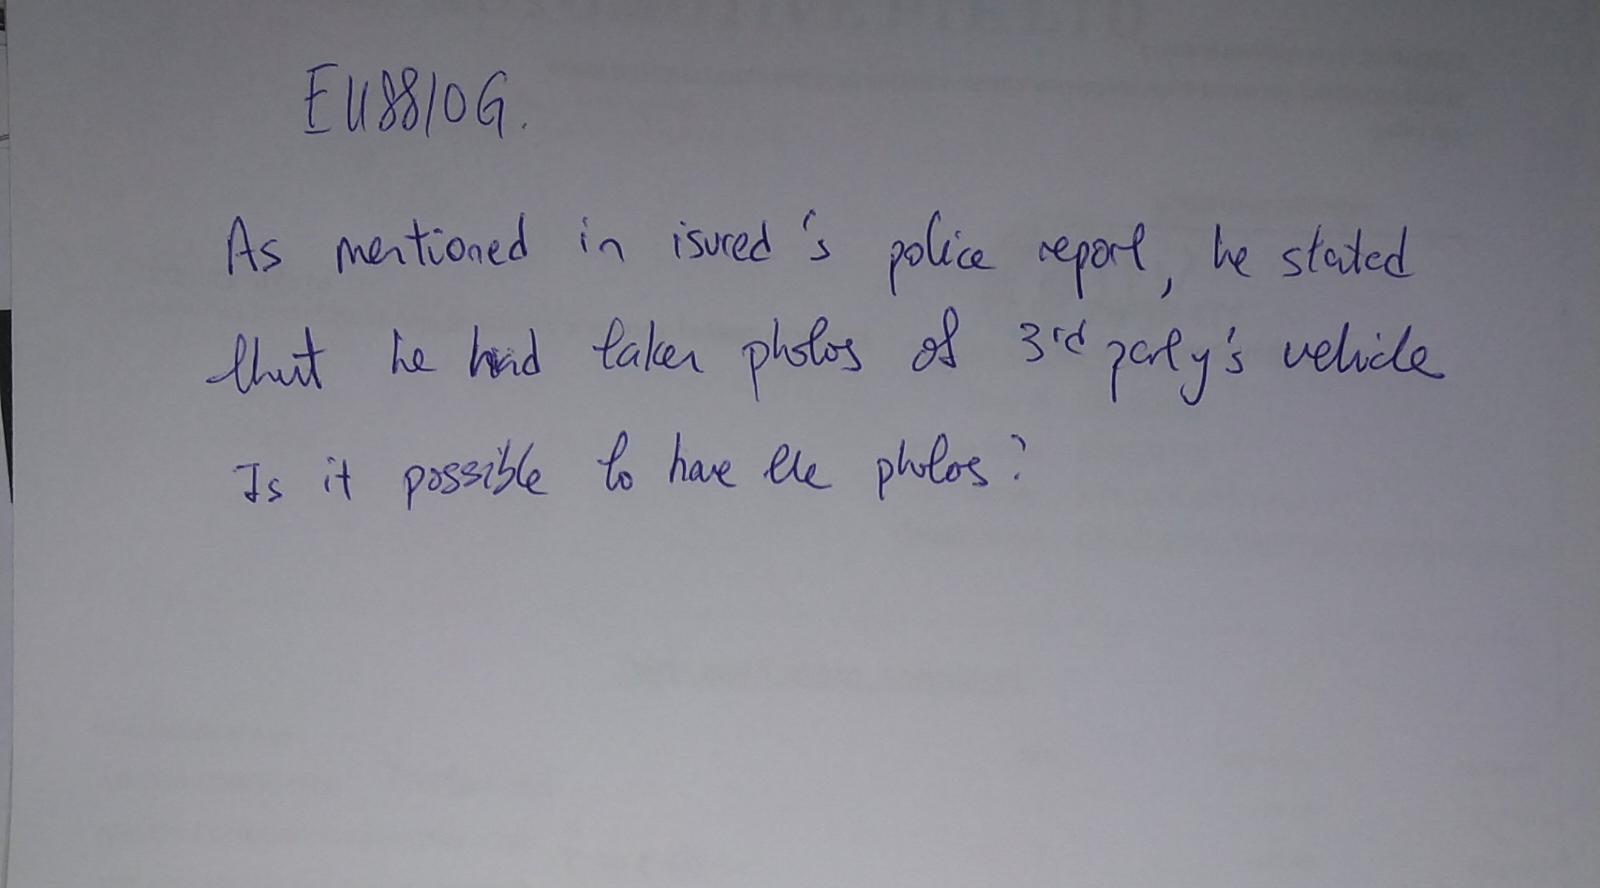 EU8810G.
As mentioned in isured's police report, he stated
that he had taken photos of 3rd party's vehicle
Is it possible to have the photos?